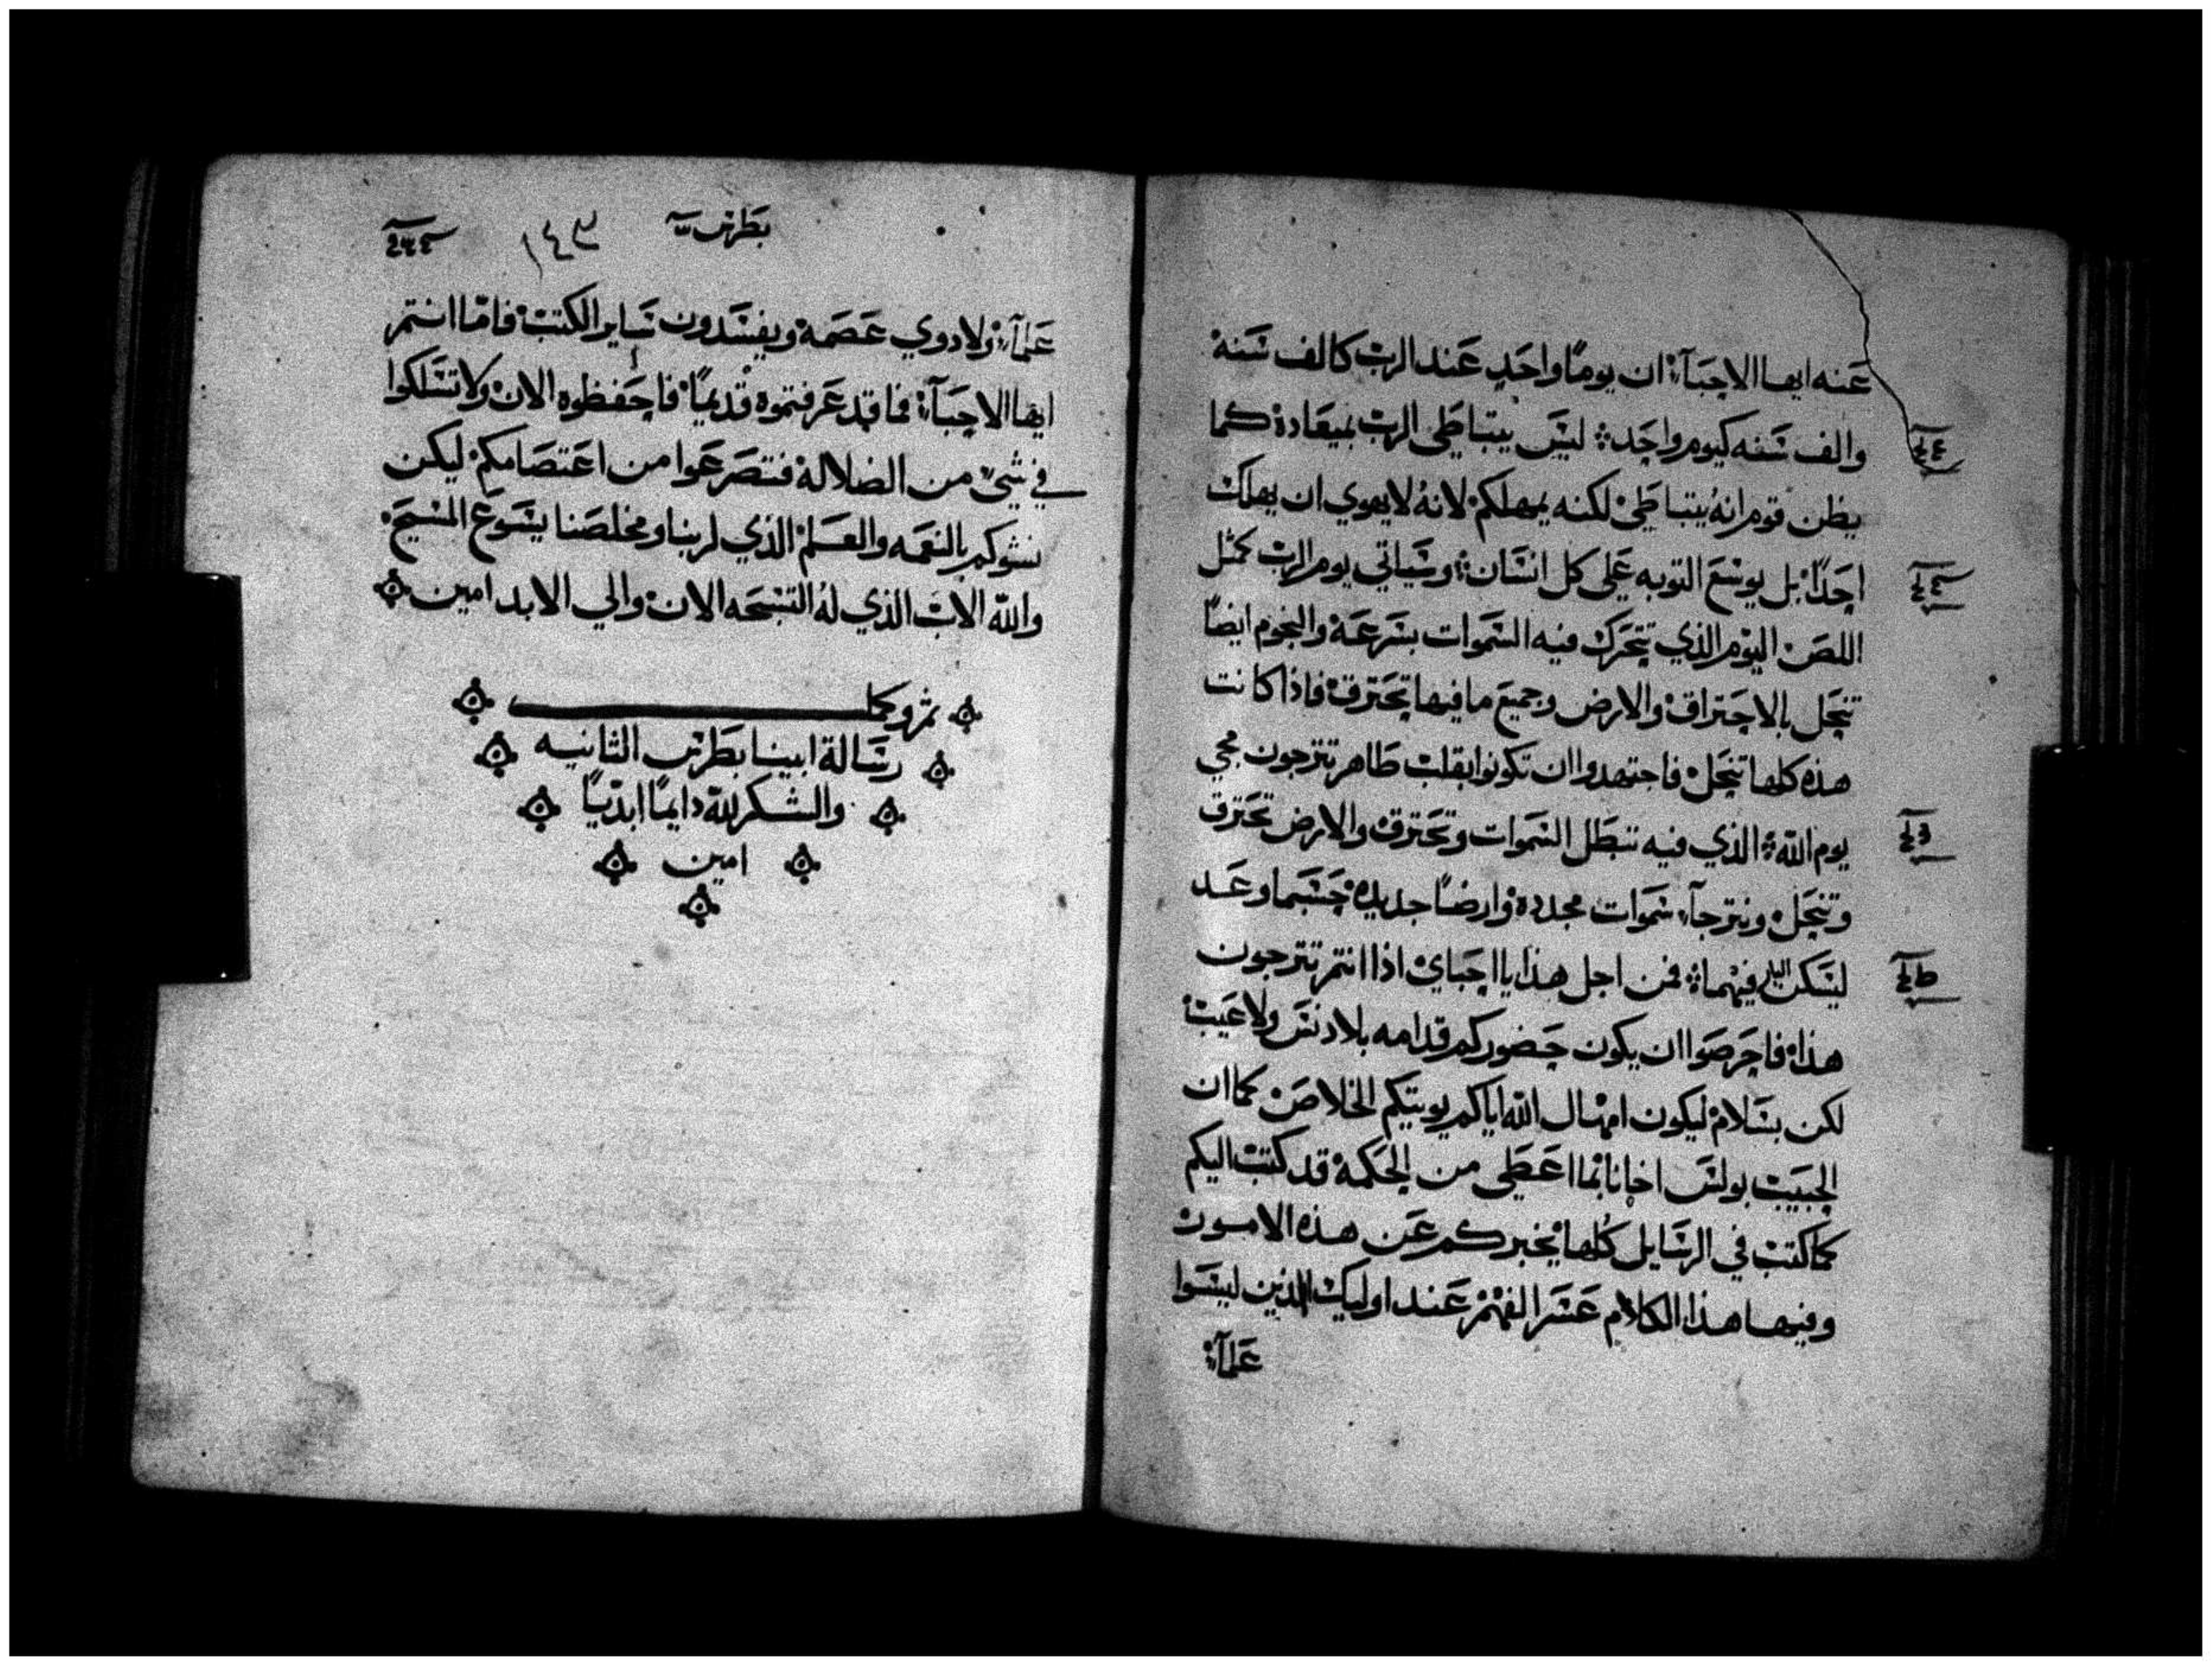 عنه ايها الاحبآء ان يومًا واحد عند الرب كالف سنة
والف سنه كيوم واحد ليس يتباطي الرب بميعاده كما
يظن قوم انهُ يتباطي لكنه يمهلكم لانهُ لا يهوي ان يهلك
احدًا بل يوسع التوبه علي كل انسان وسياتي يوم الرب كمثل
اللص اليوم الذي تتحرك فيه السموات بسرعة والنجوم ايضًا
تنحل بالاحتراق والارض وجميع ما فيها تحترق فاذا كانت
هذه كلها تنحل فاجتهدوا ان تكونوا بقلب طاهر تترجون مجي
يوم اللّه الذي فيه تبطل السموات وتحترق والارض تحترق
وتنحل ونترجآ سموات مجدده وارضًا جديده حسبما وعد
ليسكن البار فيهما فمن اجل هذا يا احباي اذا انتم تترجون
هذا فاحرصوا ان يكون حضوركم قدامه بلا دنس ولا عيب
لكن بسلام ليكون امهال اللّه اياكم يويتكم الخلاص كما ان
الحبيب بولس اخانا بما اعطي من الحكمة قد كتب اليكم
كما كتب في الرسايل كلها يخبركم عن هذه الامور
وفيها هذا الكلام عسر الفهم عند اوليك الذين ليسوا
علمآء
بطرس ١٤٩
علمآء ولا دوي عصمة ويفسدون ساير الكتب فامّا انتم
ايها الاحبآء فما قد عرفتموه قديمًا فاحفظوه الان ولا تسلكوا
في شي من الضلالة فتصرعوا من اعتصامكم ليكن
نشوكم بالنعمه والعلم الذي لربنا ومخلصنا يسوع المسيح
واللّه الاب الذي لهُ التسبحه الان والي الابد امين
تم وكمل
رسالة ابينا بطرس الثانيه
والشكر للّه دايمًا ابديًا
امين